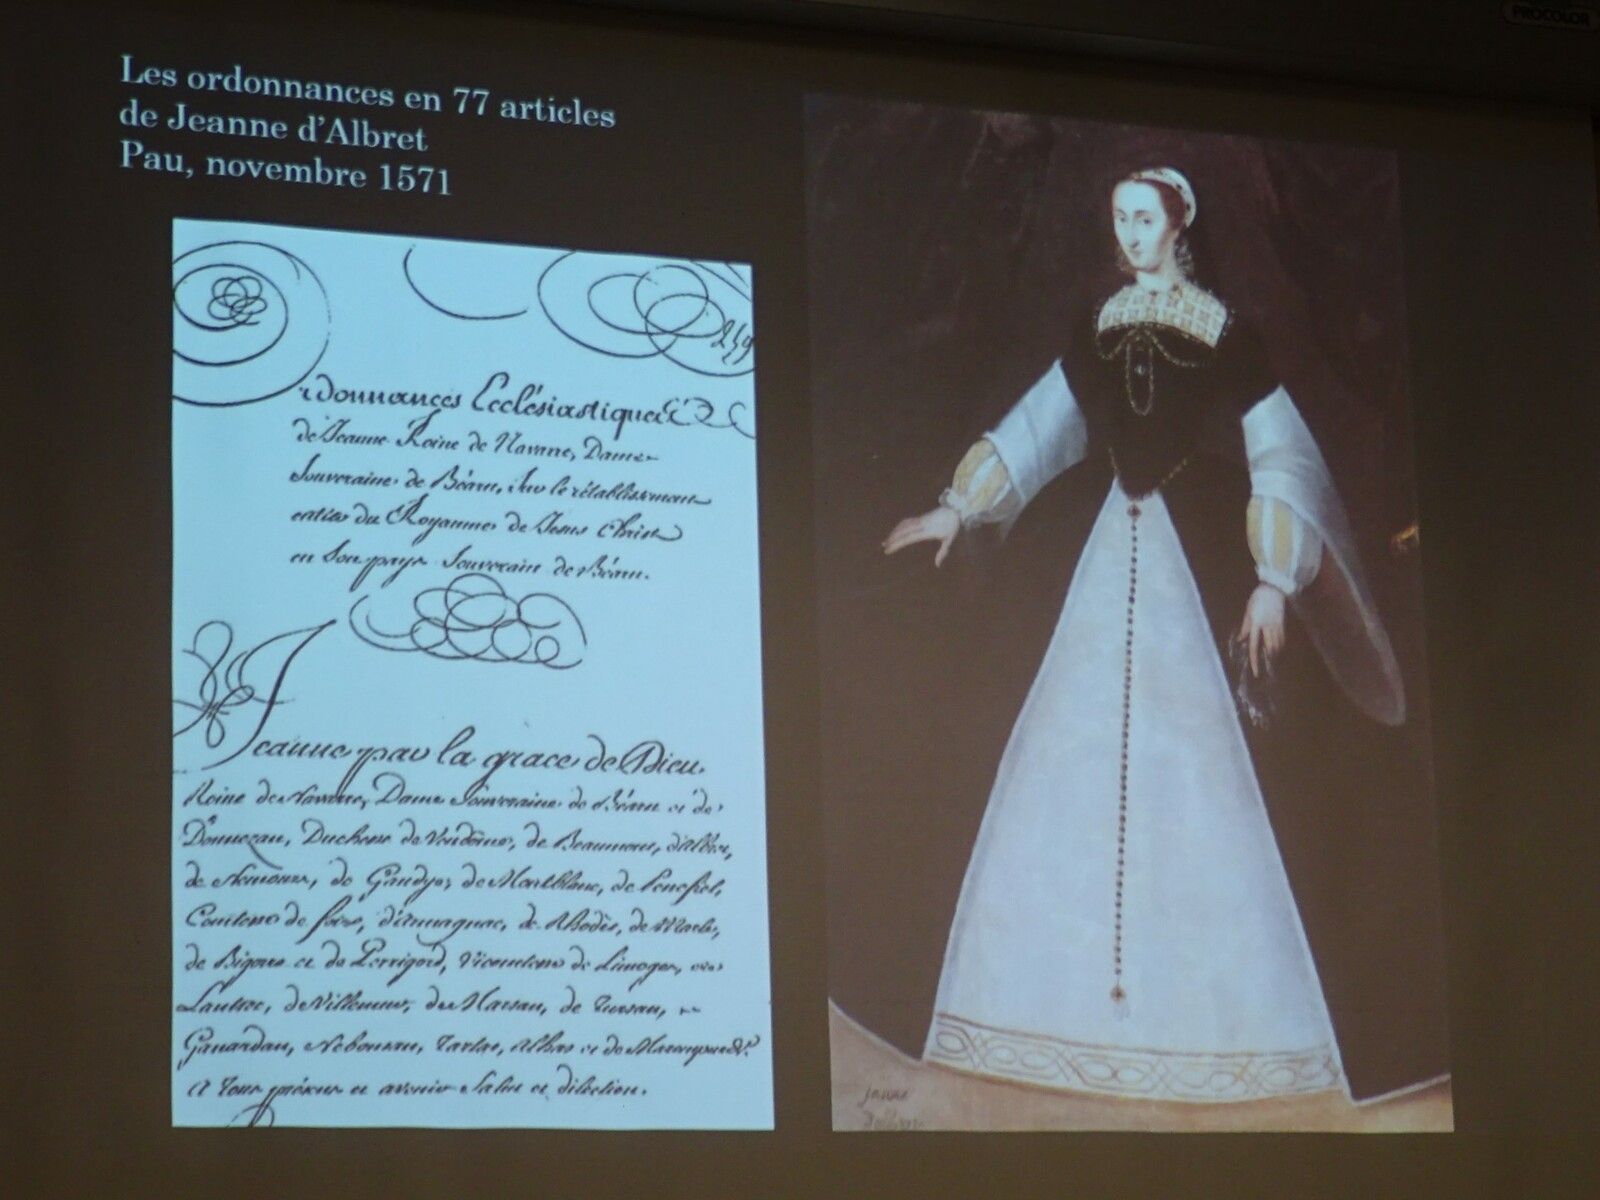 PROCOLOR
Les ordonnances en 77 articles
de Jeanne d'Albret
Pau, novembre 1571
249
rdonnances Ecclésiastiques
de Jeanne Roine de Navarre, Dame
Souveraine de Béarn, Sur le rétablissement
entier du Royaume de Jesus Christ
en Son pays Souverain de Béarn.
Jeanne par la grace de Dieu
Roine de Navarre, Dame Souveraine de Béarn et de
Donnezan, Duchesse de Vendôme, de Beaumont, d'Albret,
de Nemours, de Gandye, de Montblanc, de Penefiel,
Comtesse de foix, d'Armagnac, de Rodès, de Marle,
de Bigorre et de Perrigord, Vicomtesse de Limoges,
Lautrec, de Villemur, de Marsan, de Tursan,
Gavardan, Nebouzan, Tartas, et de
a tous présens et avenir Salut et dilection.